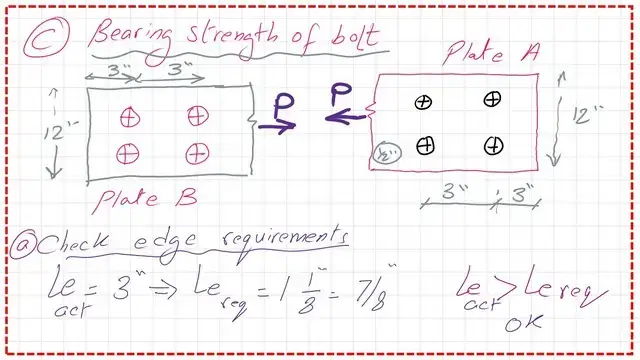 C Bearing strength of bolt
Plate A
3" 3"
P P
12" 12"
1/2"
3" 3"
Plate B
a Check edge requirements
Le act = 3" ⇒ Le req = 1 1/8" = 7/8" Le act > Le req
OK